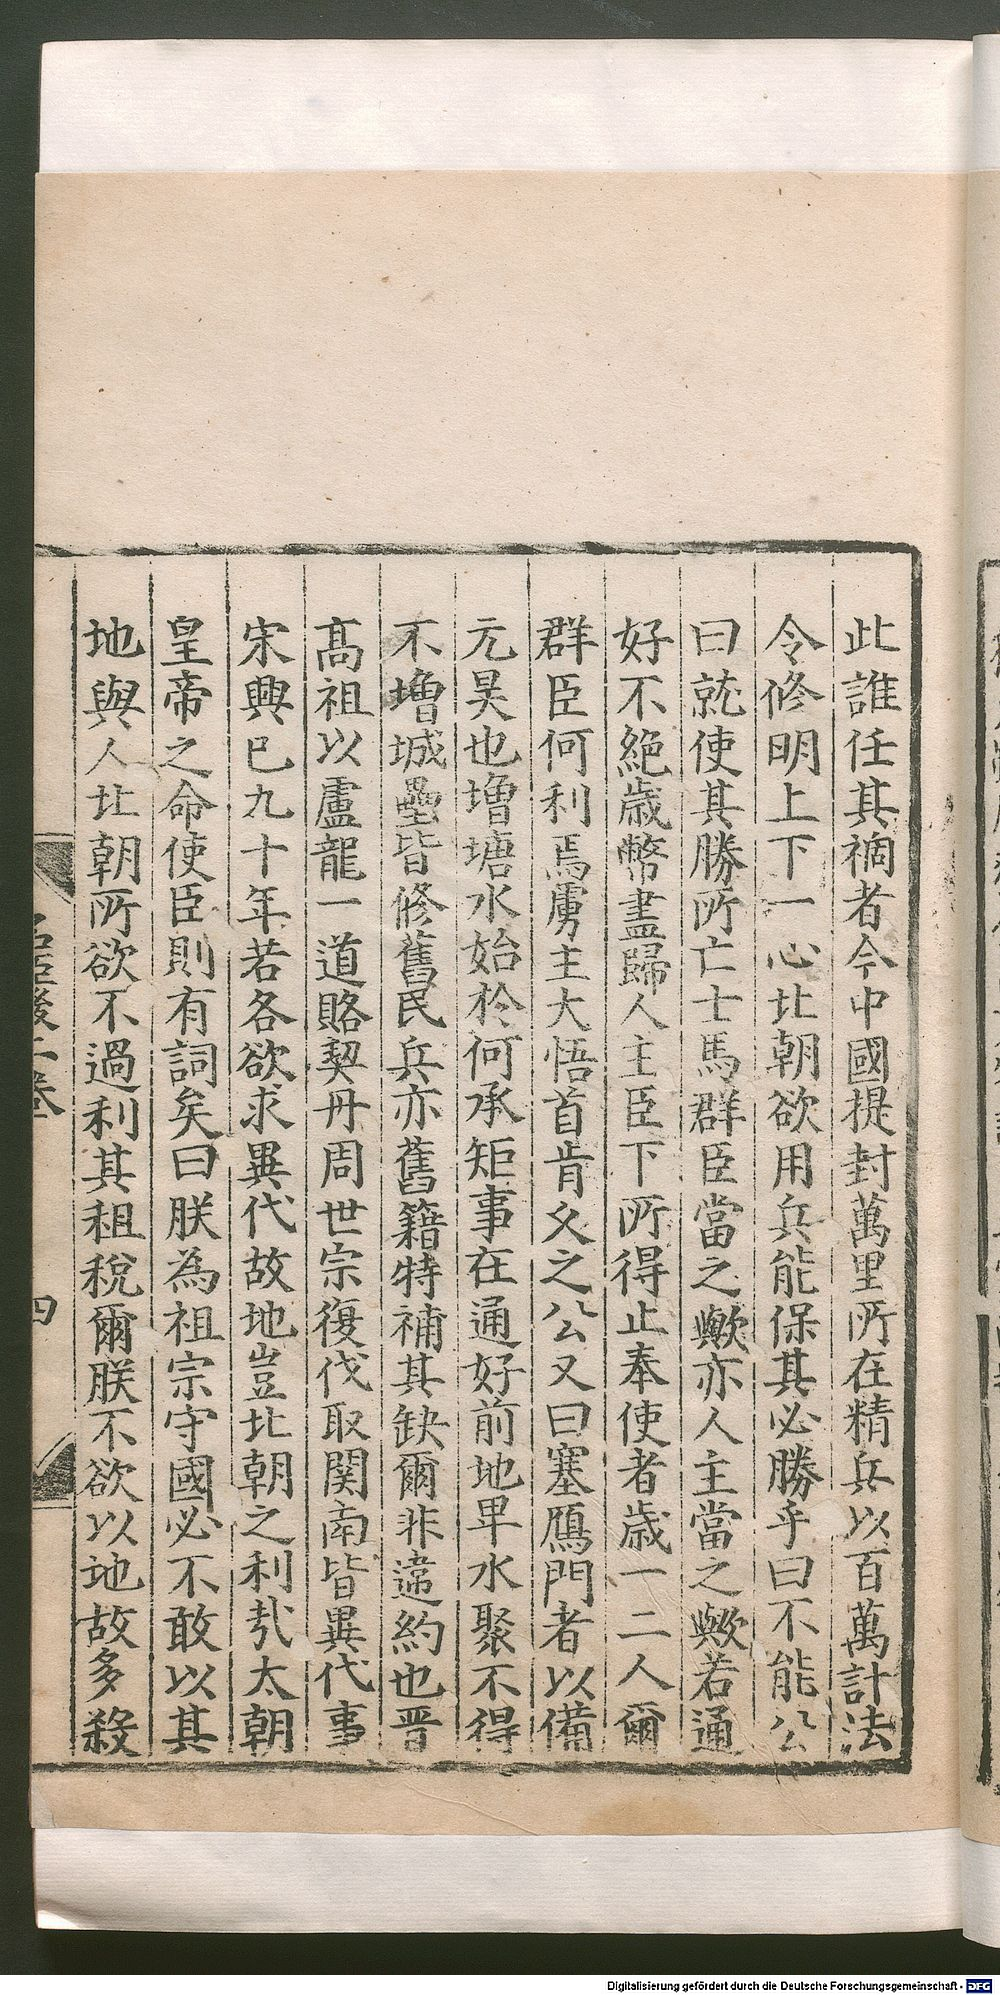 此誰任其禍者今中國提封萬里所在精兵以百萬計法
令修明上下一心北朝欲用兵能保其必勝乎曰不能公
曰就使其勝所亡士馬群臣當之歟亦人主當之歟若通
好不絶歳幣盡歸人主臣下所得止奉使者歳一二人爾
群臣何利焉虜主大悟首肯乆之公又曰塞鴈門者以備
元昊也増塘水始於何承矩事在通好前地卑水聚不得
不増城壘皆修舊民兵亦舊籍特補其缺爾非違約也晋
髙祖以盧龍一道賂契丹周世宗復伐取関南皆異代事
宋興已九十年若各欲求異代故地豈北朝之利㢤太朝
皇帝之命使臣則有詞矣曰朕為祖宗守國必不敢以其
地與人北朝所欲不過利其租税爾朕不欲以地故多殺
名臣後二巻
四
Digitalisierung gefördert durch die Deutsche Forschungsgemeinschaft - DFG